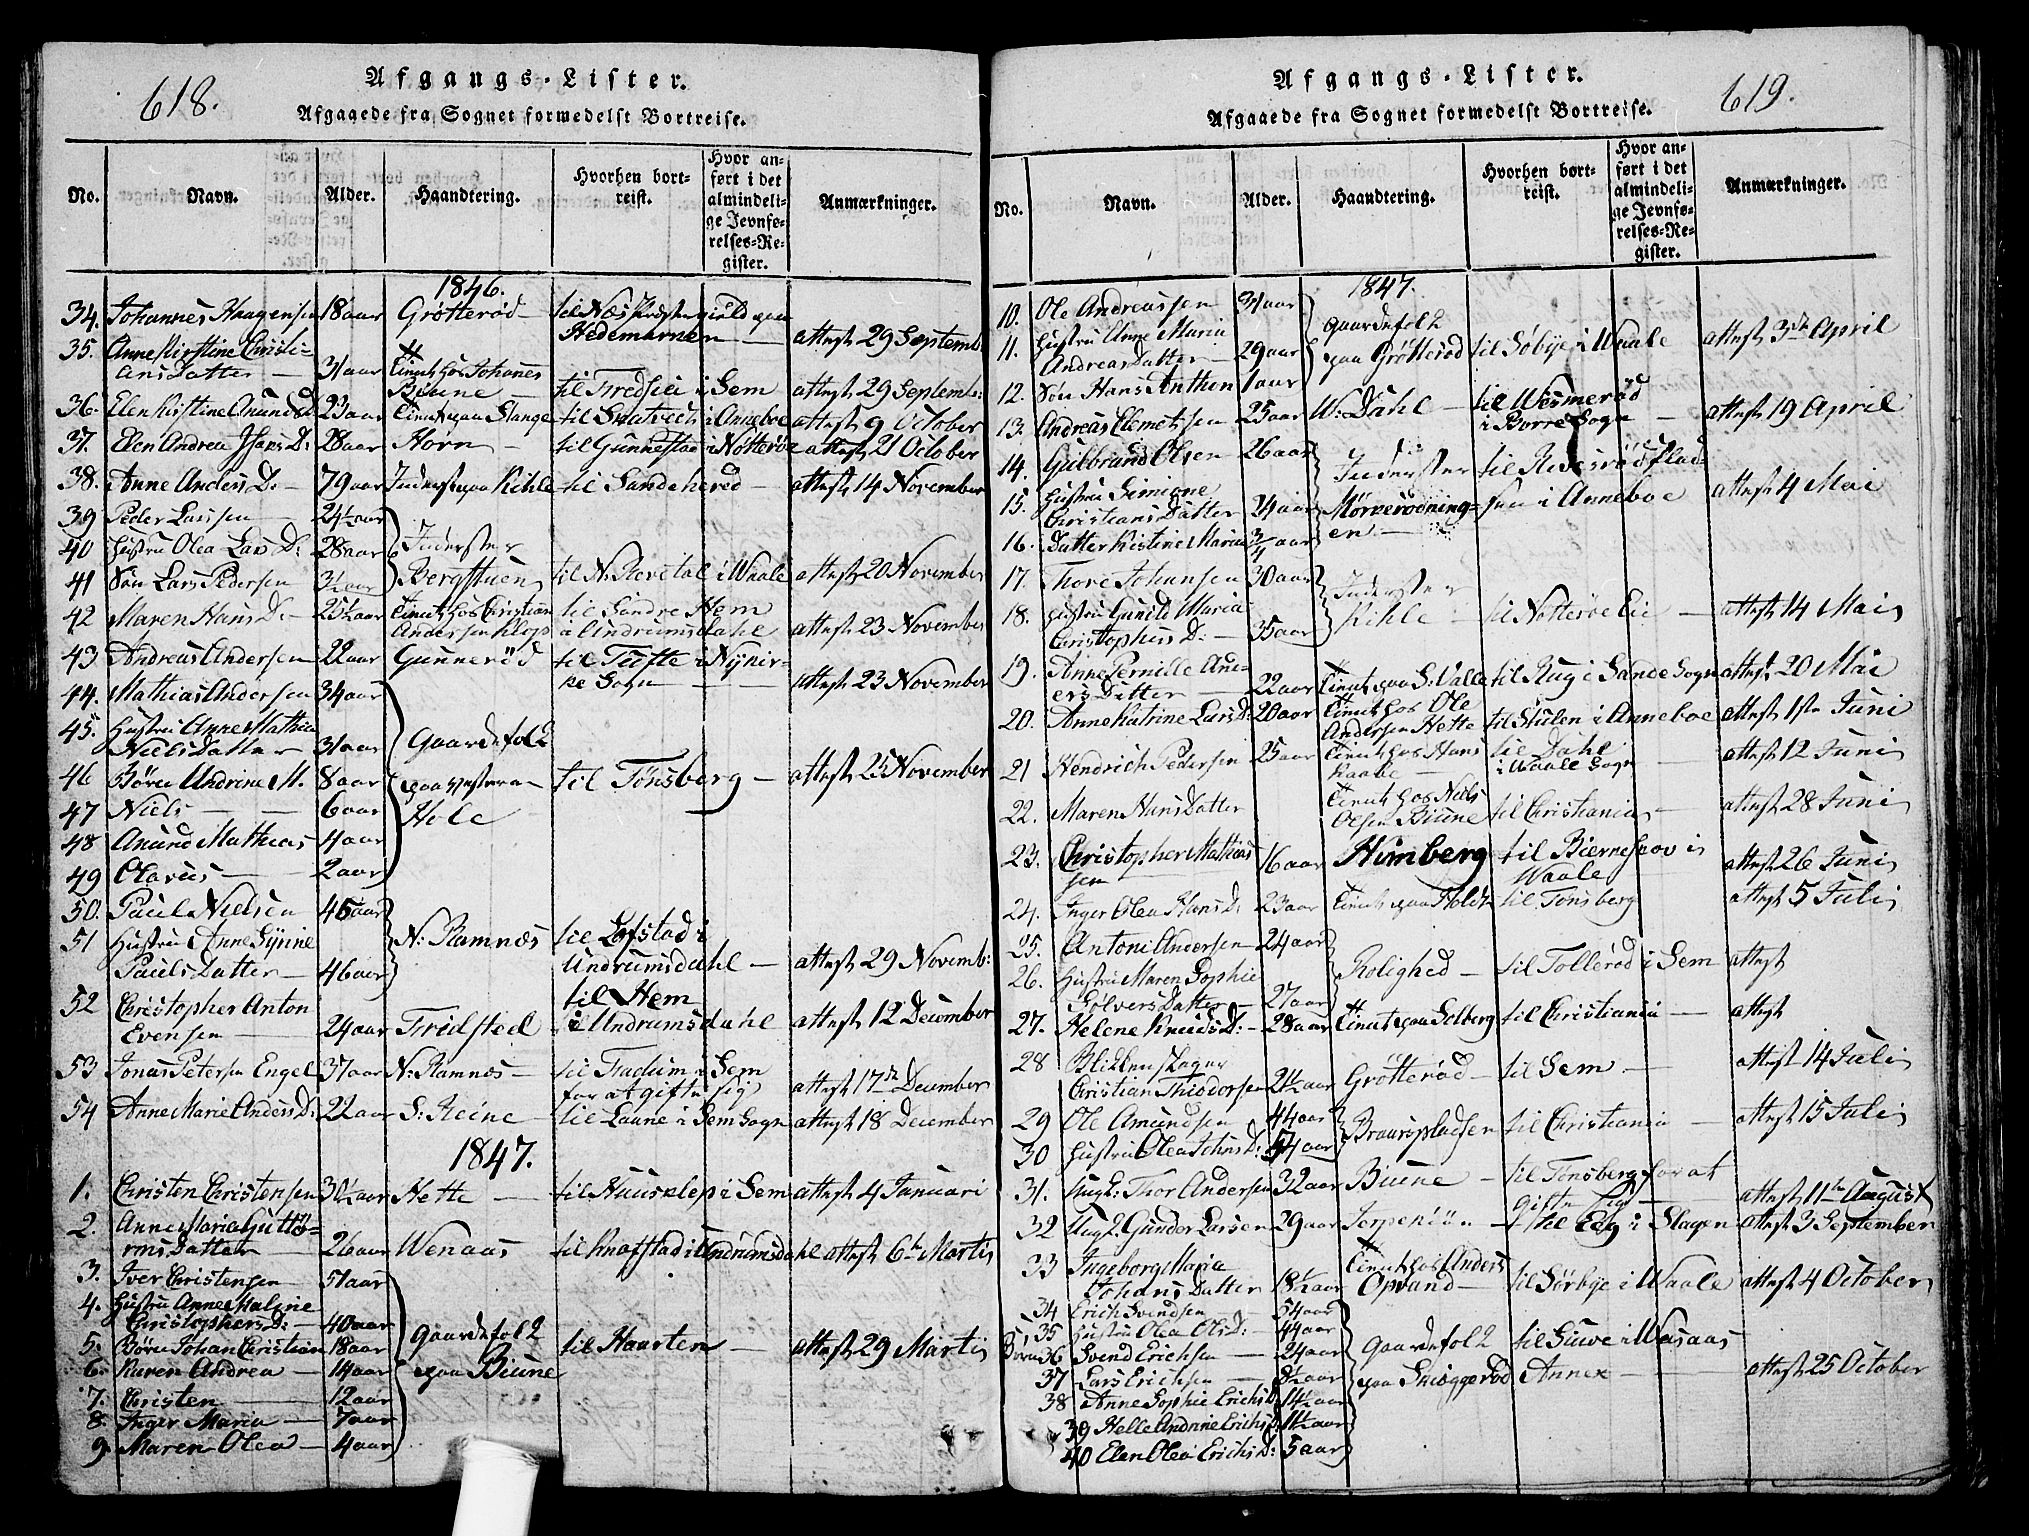 618.
Afgangs-Lister.
Afgaaede fra Sognet formedelst Bortreise.
No. Navn. Alder. Haandtering. Hvorhen bortreist. Hvor anført i det almindelige Jevnførelses-Register. Anmærkninger.
1846.
34. Johannes Haagensen 18 aar Grøtterød til Næs Præstegield paa
Hedemarken attest 29 Septemb:
35. Anne Kirstine Christi-
ans Datter 31 aar Johannes
Biune til Tredsia i Sem attest 29 Septemb:
36. Elen Kirstine Anunds D. 23 aar paa Stange til i Anneboe attest 9 October
37. Elen Andrea Hans D: 28 aar Horn til Gunnestad i Nøtterøe attest 21 October
38. Anne Anders D. 79 aar Inderst paa Kihle til Sandeherred attest 14 November
39 Peder Larssen 24½ aar
40 Hustru Olea Lars D: 28 aar Inderster
41 Søn Lars Pedersen 3½ aar Bergstuen til N. Revetal i Waale attest 20 November
42 Maren Hans D: 25½ aar hos Christian til Søndre Hem
Andersen Klop i Undrumsdahl attest 23 November
43. Andreas Andersen 22 aar Gunnerød til Tufte i Nykir-
ke Sogn attest 23 November
44. Mathias Andersen 34 aar
45. Hustru Anne Mathia
Niels Datter 31 aar Gaardefolk
46 Børn Andrine M. 8 aar paa Western til Tønsberg attest 25 November
47 Niels 6 aar Hole
48 Anund Mathias 4 aar
49 Olavus 2 aar
50. Paul Nielsen 45 aar
51 Hustru Anne Synne N: Ramnæs til Lofstad i
Pauls Datter 46 aar Undrumsdahl attest 29 Novemb:
52 Christopher Anton til Hem
Evensen 24 aar Tridsted i Undrumsdahl attest 12 December
53 Jonas Petersen Engel 37 aar N: Ramnæs til i Sem
for at gifte sig attest 17de December
54 Anne Marie Anders D: 22 aar S: Reine til i Sem Sogn attest 18 December
1847.
1. Christen Christensen 30½ aar Hette til i Sem attest 4 Januari
2. Anne Marie Gutto-
rms Datter 26 aar Wenaas til Knafstad i Undrumsdahl attest 6te Martis
3. Iver Christensen 51 aar
4. Hustru Anne Maline
Christophers D: 40 aar
5. Børn Johan Christian 18 aar Gaardefolk til Haarten attest 29 Martis
6. Karen Andrea 14 aar paa Biune
7. Christen 12 aar
8. Inger Maria 7 aar
9. Maren Olea 4 aar
619.
Afgangs-Lister.
Afgaaede fra Sognet formedelst Bortreise.
No. Navn. Alder. Haandtering. Hvorhen bortreist. Hvor anført i det almindelige Jevnførelses-Register. Anmærkninger.
1847.
10. Ole Andreassen 31 aar
11. Hustru Anne Maria Gaardefolk
Andreas Datter 29 aar paa Grøtterød til Søbye i Waale attest 3de April
12. Søn Hans Anthon 1 aar
13. Andreas Clemetsen 25 aar W: Dahl til Wesmerød
i Borre Sogn attest 19 April
14. Gulbrand Olsen 26 aar Inderster til Revesrødplad-
15. Hustru Simione
Christians Datter 24 aar Mørverødning- sen i Anneboe attest 4 Mai
16. Datter Kistine Maria ¾ aar en
17. Thore Johansen 30 aar Inderster
18. Hustru Gunild Maria Kihle til Nøtterøe Eie attest 14 Mai
Christophers D: 35 aar
19. Anne Pernille An-
ers Datter 22 aar paa S: Valle til Rug i Sande Sogn attest 20 Mai
20. Anne Katrine Lars D: 20 aar hos Ole
Andersen Hette til Stulen i Anneboe attest 1ste Juni
21 Hendrich Pedersen 25 aar hos Hans til Dahl
Raabe i Waale Sogn attest 12 Juni
22. Maren Hans Datter hos Niels
Olsen Biune til Christiania attest 28 Juni
23. Christopher Mathias
sen 16 aar Himberg til Biørneskov i
Waale attest 26 Juni
24. Inger Olea Hans D: 23 aar paa Holdt til Tønsberg attest 5 Juli
25. Antoni Andersen 24 aar
26. Hustru Maren Sophie Rolighed til Tollerød i Sem attest
Sølvers Datter 27 aar
27. Helene Knuds D: 28 aar paa Solberg til Christiania attest
28 Blikkenslager
Christian Theodorsen 24½ aar Grøtterød til Sem attest 14 Juli
29 Ole Amundsen 44 aar
30 Hustru Olea Johns D: 54 aar Braarspladsen til Christiania attest 15 Juli
31. Ungk: Thor Andersen 32 aar Biune til Tønsberg for at
gifte sig attest 11te August
32 Ungk. Gunder Larsen 29 aar Jerpenløn til Eeg i Slagen attest 3 September
33 Ingeborg Maria hos Anders
Johans Datter 18½ aar Opsand til Sørbye i Waale attest 4 October
34 Erich Svendsen 54 aar
35 Hustru Olea Ols D: 44 aar
Børn 36 Svend Erichsen 24 aar Gaardefolk til i Wasaas
37 Lars Erichsen 8½ aar paa Sniøggerød Annex attest 25 October
38 Anne Sophie Erichs D 14½ aar
39 Helle Andrine Erichs D: 11½ aar
40 Elen Olea Erichs D: 5 aar